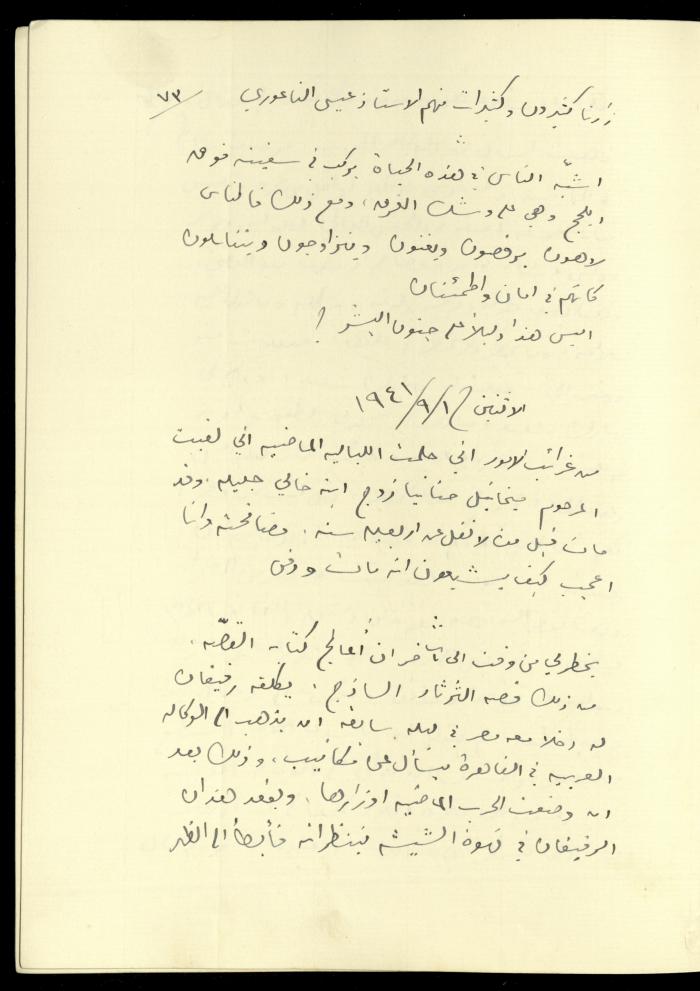 زارنا كثيرون وكثيرات منهم الاستاذ عيسى الناعوري
٧٣/
اشبّه الناس في هذه الحياة بركب في سفينة فوق
اللجج وهي على وشك الغرق، ومع ذلك فالناس
لاهون يرقصون ويغنون ويتزاوجون ويتناسلون
كانهم في امان واطمئنان
اليس هذا دليلاً على جنون البشر ؟
الاثنين ١/٩/١٩٤١
من غرائب الامور اني حلمت الليلة الماضيه اني لقيت
المرحوم ميخائيل حنانيا زوج ابنة خالي جليله. وقد
مات قبل مدة لا تقل عن اربعين سنه. فصافحته وانا
اعجب كيف يشيعون انه مات ودفن
يخطر لي من وقت الى آخر ان أعالج كتابة القصّه.
من ذلك قصه الثرثار الساذج. يكلفه رفيقان
له دخلا معه مصر في ليله سابقه ان يذهب الى الوكاله
العربيه في القاهرة ليسأل عن مكاتيب، وذلك بعد
ان وضعت الحرب الماضيه اوزارها. ويقعد هذان
الرفيقان في قهوة الشيشه ينتظرانه فأبطأ الى الظهر